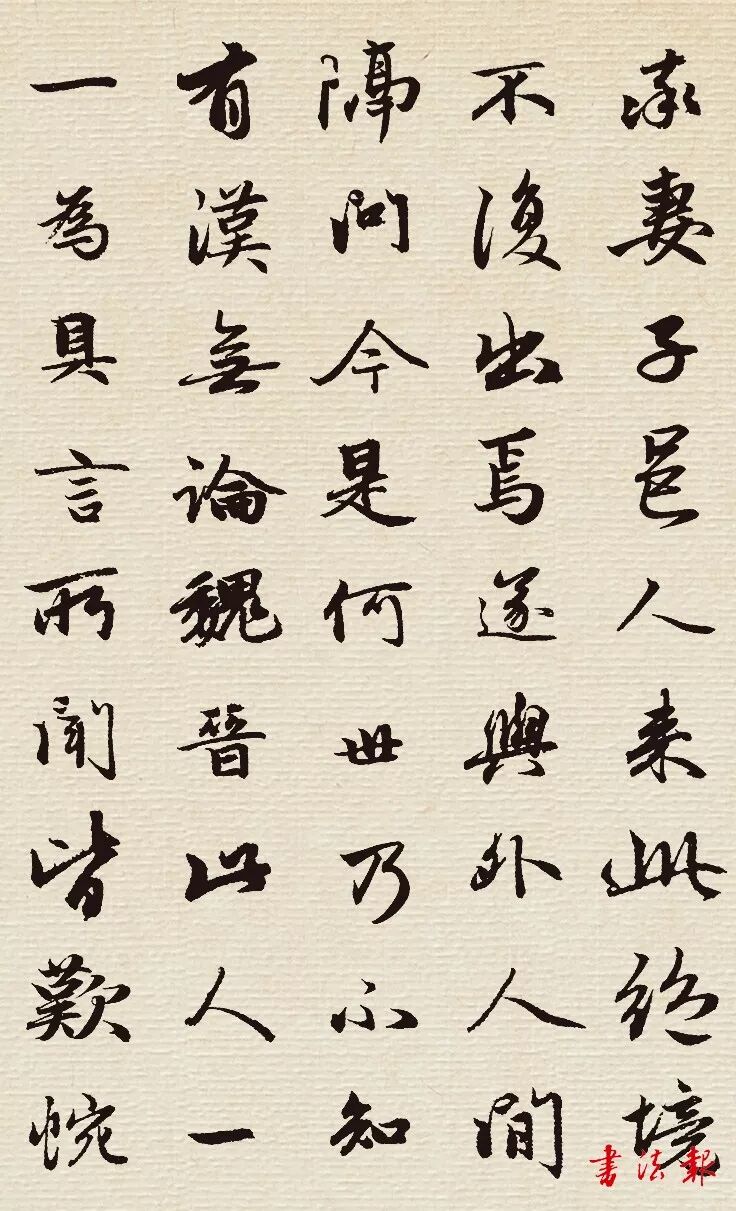 率妻子邑人来此絶境
不復出焉遂與外人間
隔問今是何世乃不知
有漢無論魏晉此人一
一為具言所聞皆歎惋
書法報